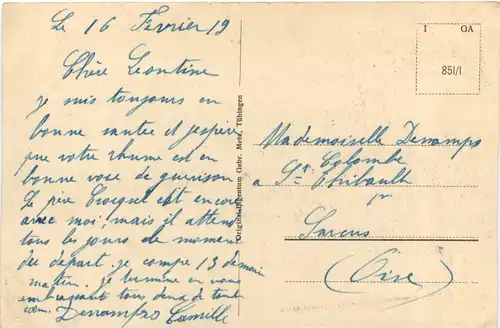 Le 16 Février 19
Chère Leontine
je suis toujours en
bonne santee et j'espère
que votre rhume est en
bonne vose de guerison
Le père Croiquet est encore
avec moi, mais il attend
tous les jours de moment
du départ. je compe 13 demain
matin. je termine en vous
embrassant tous deux de tout
coeur. Dessamps Camille
Originaleigentum Gebr. Metz, Tübingen
I GA
851/1
Mademoiselle Dessamps
Colombe
a St Thibault
par
Sarcus
(Oise)